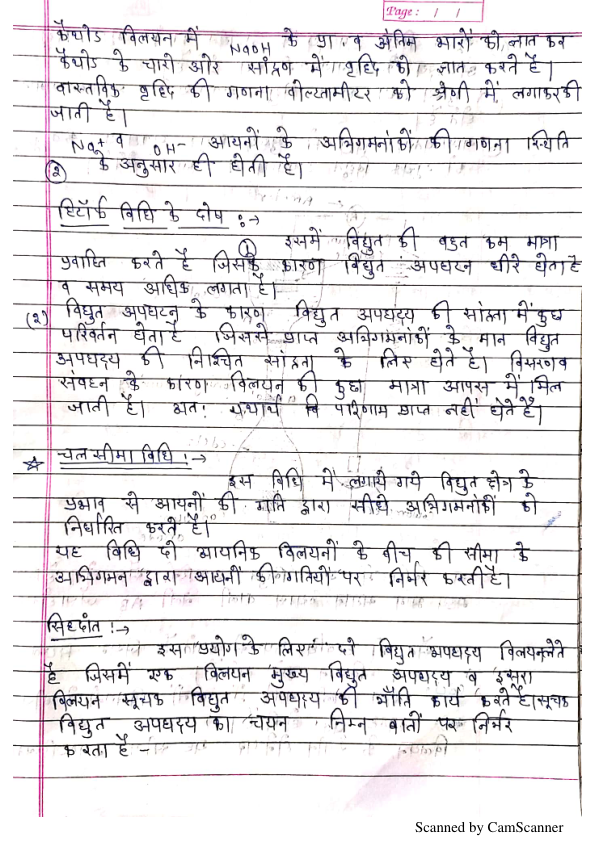 Page: / /
कैथोड विलयन में NaOH के प्रा. व अंतिम भारों को ज्ञात कर
कैथोड के चारो ओर सांद्रण में वृध्दि को ज्ञात करते है।
वास्तविक वृध्दि की गणना वोल्टामीटर को श्रेणी में लगाकर की
जाती है।
Na+ व OH- आयनों के अभिगमनांकों की गणना स्थिति
② के अनुसार ही होती है।
हिटॉर्फ विधि के दोष :→
① इसमें विद्युत की बहुत कम मात्रा
प्रवाहित करते है जिसके कारण विद्युत अपघटन धीरे होता है
व समय अधिक लगता है।
(२) विद्युत अपघटन के कारण विद्युत अपघट्य की सांद्रता में कुछ
परिवर्तन होता है जिससे प्राप्त अभिगमनांकों के मान विद्युत
अपघट्य की निश्चित सांद्रता के लिए होते है। विसरण व
संवहन के कारण विलयन की कुछ मात्रा आपस में मिल
जाती है। अतः यथार्थ परिणाम प्राप्त नहीं होते है।
☆ चल सीमा विधि :→
इस विधि में लगाये गये विद्युत क्षेत्र के
प्रभाव से आयनों की गति द्वारा सीधे अभिगमनांकों को
निर्धारित करते है।
यह विधि दो आयनिक विलयनों के बीच की सीमा के
अभिगमन द्वारा आयनों की गतियों पर निर्भर करती है।
सिध्दांत :→
इस प्रयोग के लिए दो विद्युत अपघट्य विलयन लेते
है जिसमें एक विलयन मुख्य विद्युत अपघट्य व दूसरा
विलयन सूचक विद्युत अपघट्य की भाँति कार्य करते है। सूचक
विद्युत अपघट्य का चयन निम्न बातों पर निर्भर
करता है -
Scanned by CamScanner